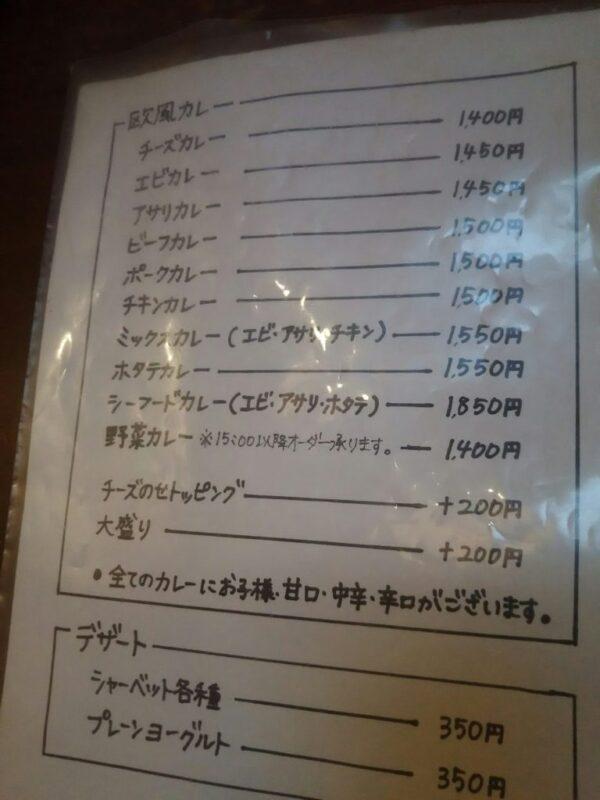 欧風カレー
チーズカレー 1,400円
エビカレー 1,450円
アサリカレー 1,450円
ビーフカレー 1,500円
ポークカレー 1,500円
チキンカレー 1,500円
ミックスカレー(エビ・アサリ・チキン) 1,550円
ホタテカレー 1,550円
シーフードカレー(エビ・アサリ・ホタテ) 1,850円
野菜カレー ※15:00以降オーダー承ります。 1,400円
チーズのせトッピング +200円
大盛り +200円
• 全てのカレーにお子様・甘口・中辛・辛口がございます。
デザート
シャーベット各種 350円
プレーンヨーグルト 350円